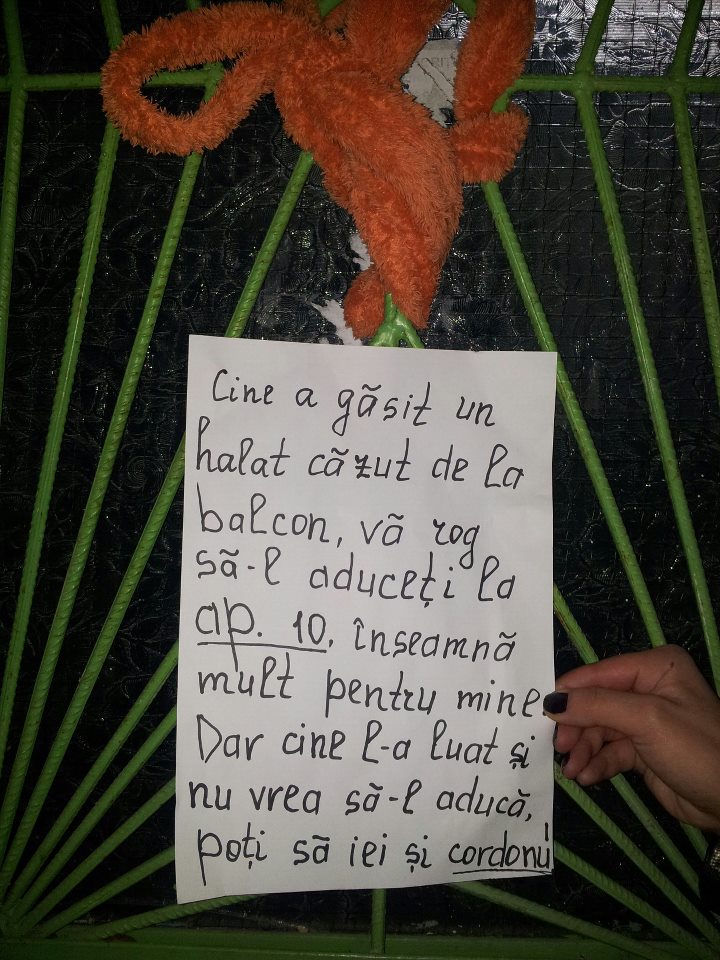 Cine a găsit un
halat căzut de la
balcon, vă rog
să-l aduceți la
ap. 10, înseamnă
mult pentru mine
Dar cine l-a luat și
nu vrea să-l aducă,
poți să iei și cordonu